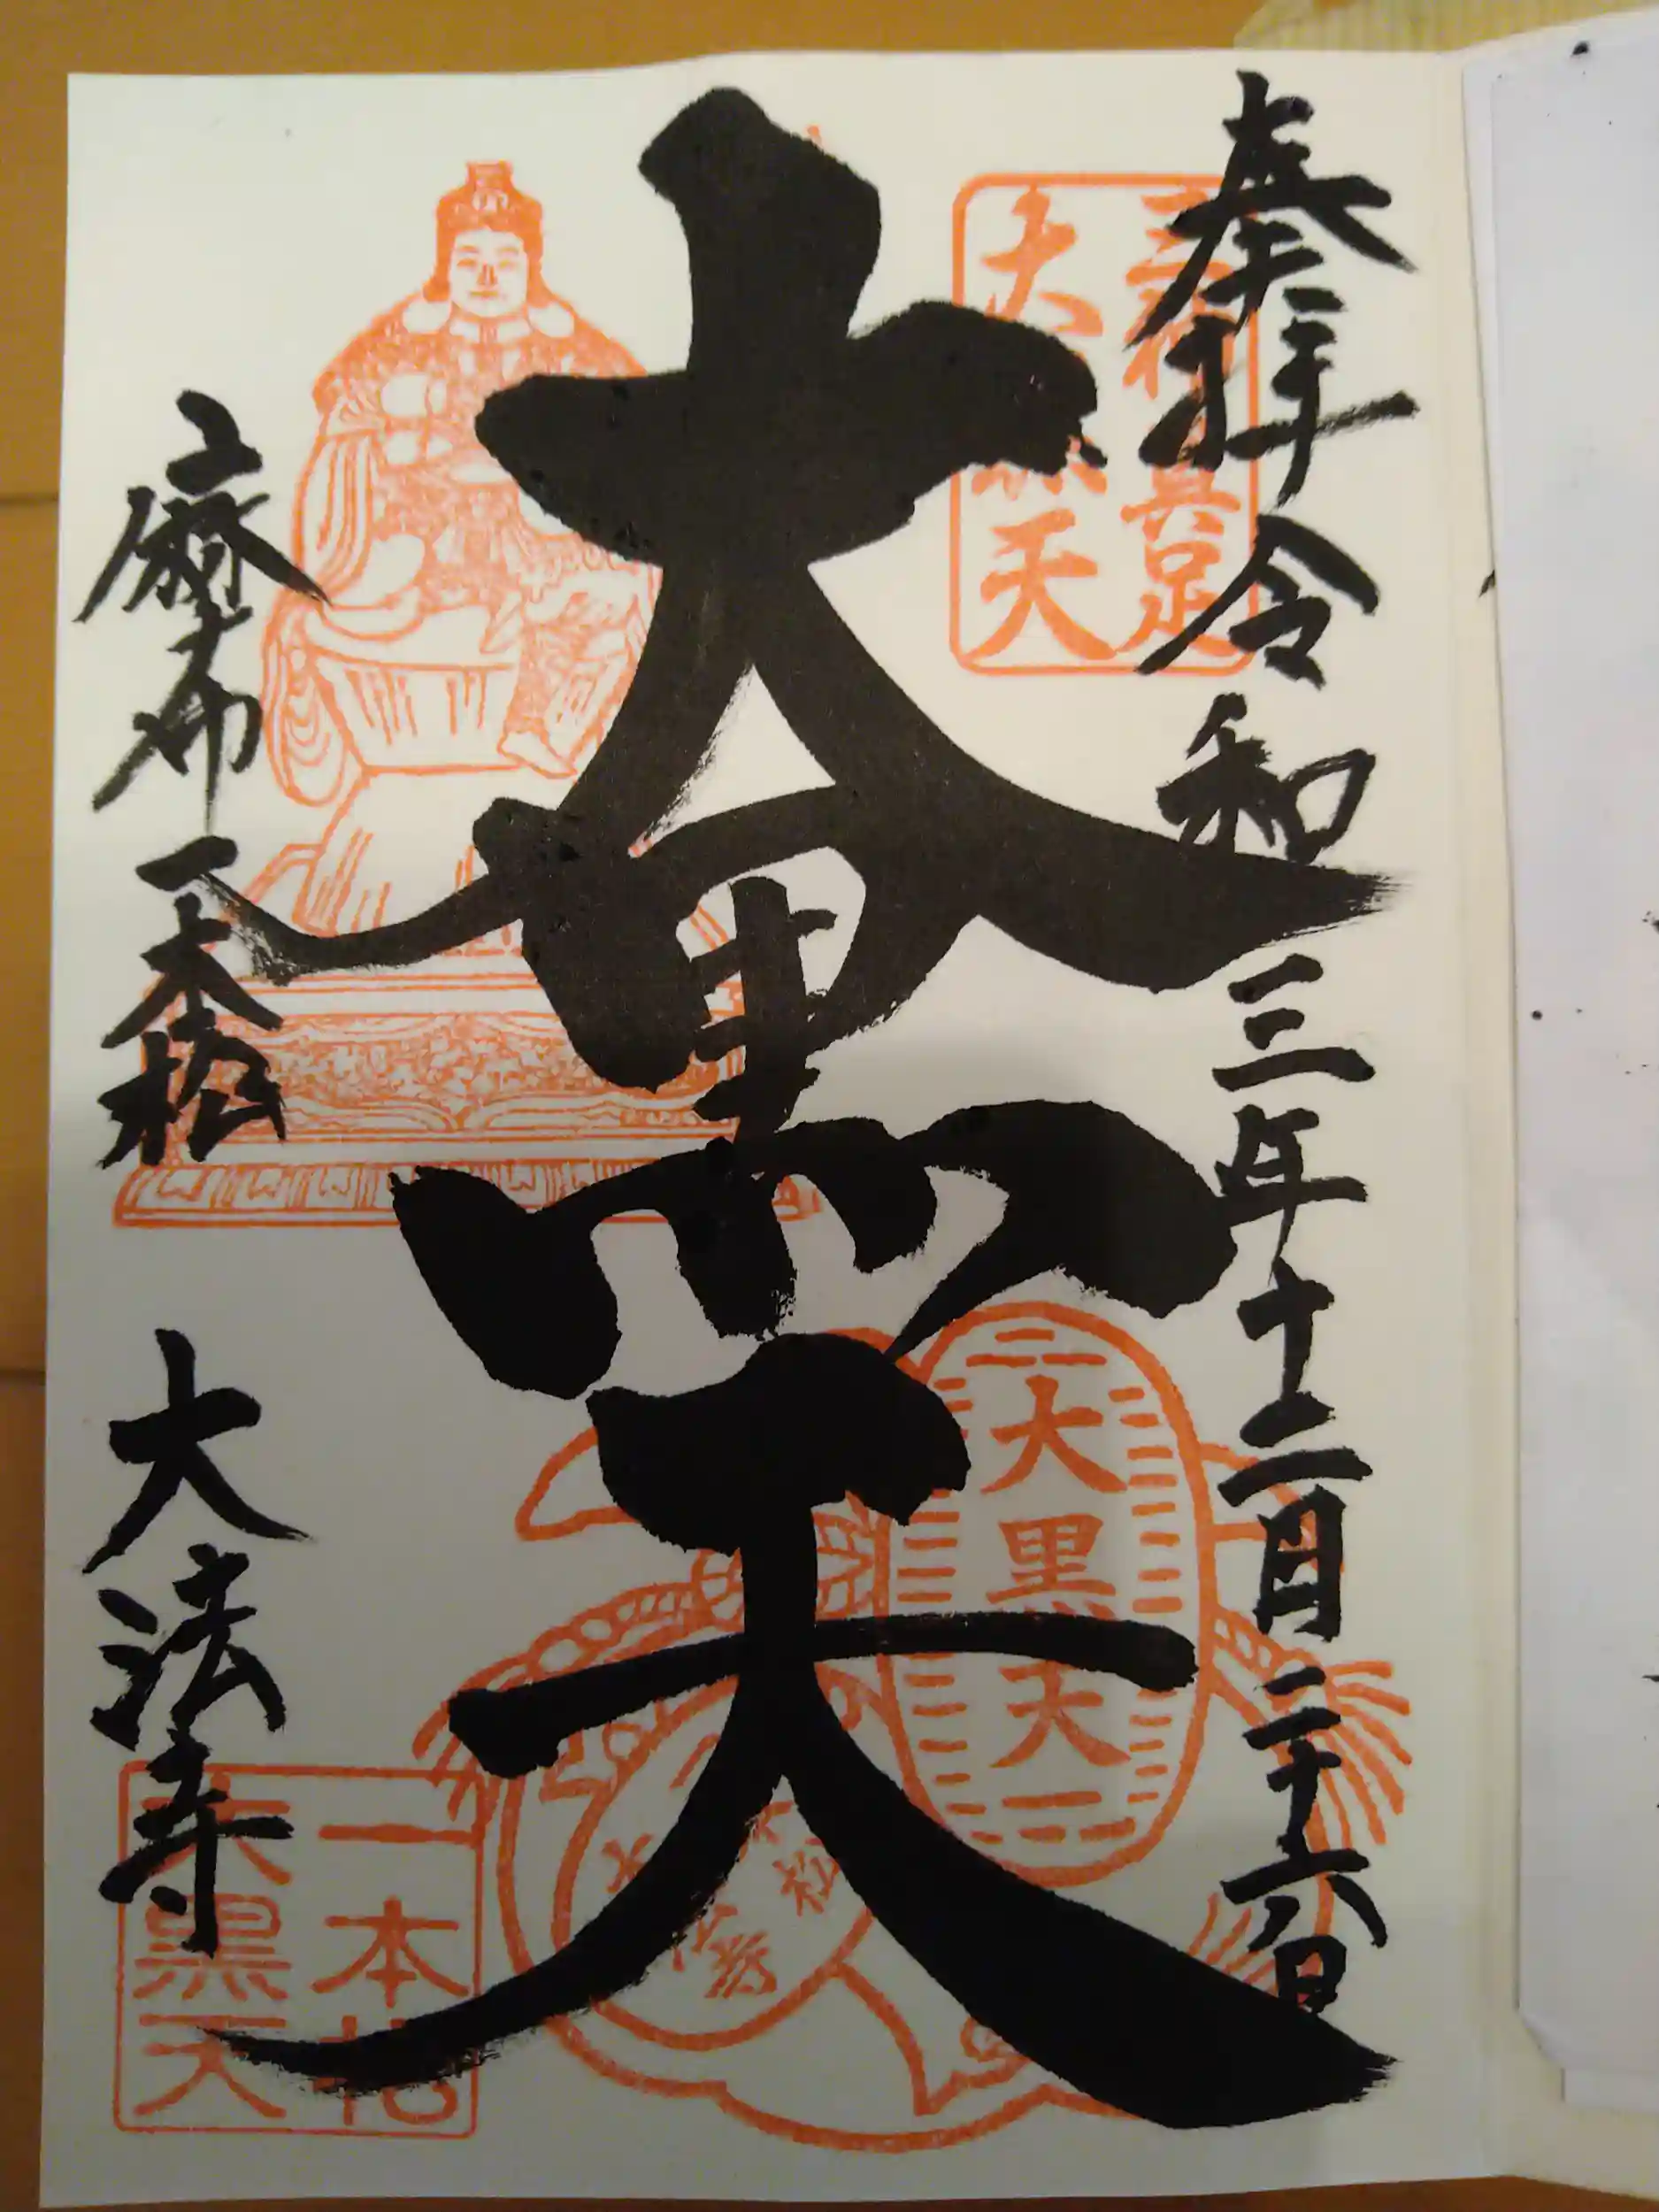 奉拝 令和三年十二月二十六日
大黒天
麻布一本松 大法寺
具足
大 天
大黒天
松
寺
一本松
大黒天